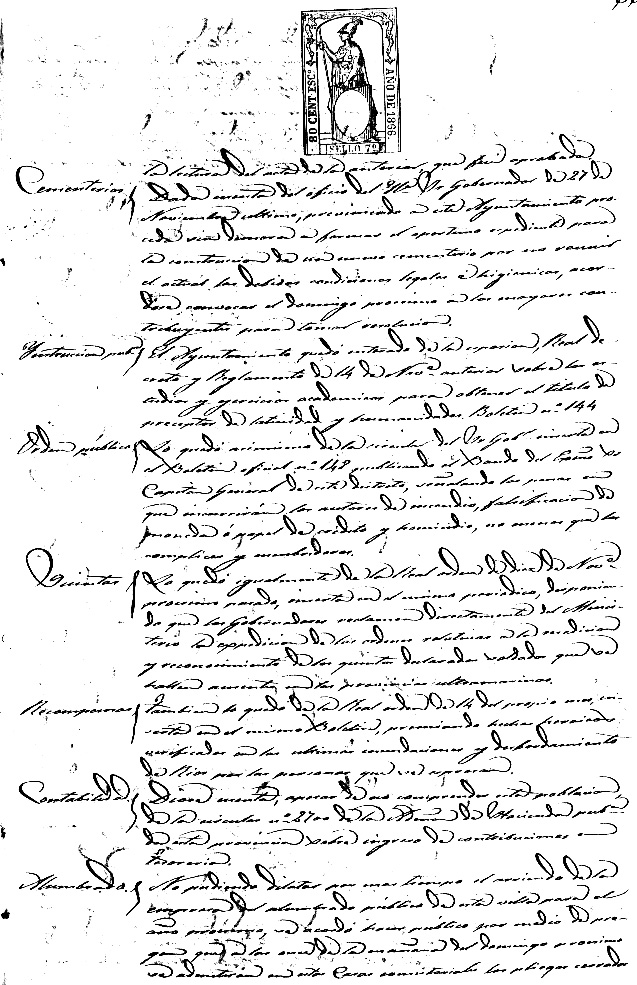 80 CENT. ESCº
AÑO DE 1866
SELLO 7º
la lectura del acta de la anterior, que fue aprobada
Cementerios } Dada cuenta del oficio del Sr. Gobernador de 27 de
Noviembre último, previniendo a este Ayuntamiento pro-
ceda sin demora a formar el oportuno expediente para
la construccion de un nuevo cementerio por no reunir
el actual las debidas condiciones legales é higienicas, acor-
dose convocar el domingo procsimo a los mayores con-
tribuyentes para tomar resolucion.
El Ayuntamiento quedó enterado de la Real de-
creto y Reglamento de 14 de Novº anterior sobre los es-
tudios y ejercicios academicos para obtener el titulo de
preceptor de latinidad y humanidades. Boletin nº 144
Orden público } Lo quedó asimismo de la circular del Sr. Gobr inserta en
el Boletin oficial nº 148 publicando el Bando del Sr.
Capitan General de este distrito, señalando las penas en
que incurrirán los autores de incendio, falsificacion de
moneda ó papel de credito y homicidio, no menos que los
complices y encubridores.
Quintas } Lo quedó igualmente de la Real orden de de Novº
procsimo pasado, inserta en el mismo periodico, disponien-
do que los Gobernadores reclamen directamente del Minis-
terio la espedicion de las ordenes relativas a la medicion
y reconocimiento de los quintos declarados soldados que se
hallen ausentes en las provincias ultramarinas.
Recompensas } Tambien lo quedó de la Real orden de 14 del propio mes, in-
serta en el mismo Boletin, premiando
verificados en las ultimas inundaciones y desbordamiento
de Rios por las personas que se espresan.
Contabilidad } Diose cuenta, apesar de no comprender esta poblacion,
de la circular nº 2700 de la Admon de Hacienda pubª
de esta provincia sobre ingreso de contribuciones en
Tesoreria.
Alumbrado } No pudiendo dilatar por mas tiempo el arriendo de la
empresa del alumbrado público de esta villa para el
año procsimo, se acordó hacer público por medio de pre-
gon que a las once de la mañana del domingo procsimo
se admitirán en estas Casas consistoriales los pliegos cerrados